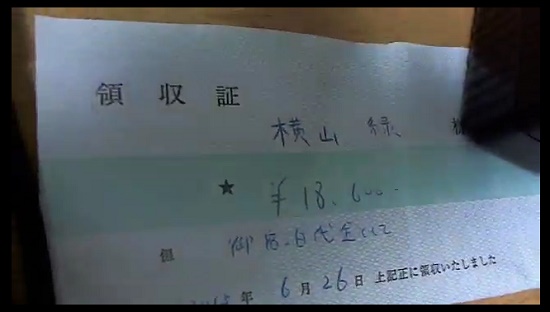 領収証
横山 緑 様
★ ¥18,600-
但 御店、白代金として
2015年 6月26日 上記正に領収いたしました